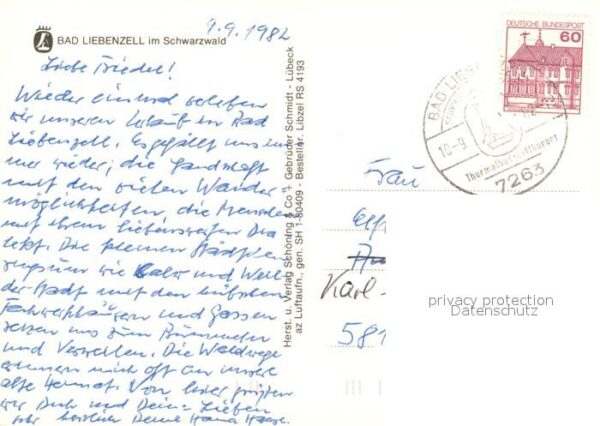 9.9.1982
BAD LIEBENZELL im Schwarzwald
Liebe Friedel!
Wieder einmal erleben
wir unseren Urlaub in Bad
Liebenzell. Es gefällt uns im-
mer wieder, die Landschaft
mit den vielen Wander-
möglichkeiten, die Menschen
mit ihrem liebenswerten Dia
lekt. Die kleinen Städtchen
ringsum wie Calw und Weil
der Stadt mit den hübschen
Fachwerkhäusern und Gassen
reizen uns zum Bummeln
und Verweilen. Die Waldwege
erinnern mich oft an unsere
alte Heimat. Von hier grüßen
wir Dich und Deine Lieben
sehr herzlich Deine
Herst. u. Verlag Schöning & Co + Gebrüder Schmidt - Lübeck
az Luftaufn., gen. SH 1-80409 - Bestellnr. Libzel RS 4193
DEUTSCHE BUNDESPOST
60
BAD LIEB
10-9
Thermalbad-Luftkurort
7263
Frau
Karl-
581
privacy protection
Datenschutz